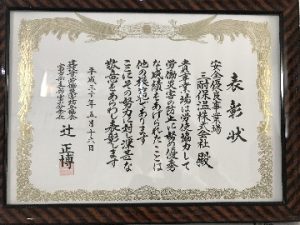 表彰状
安全優良事業場
三耐保温株式会社 殿
貴事業場は労使協力して
労働災害の防止に努め優秀
な成績をあげられたことは
他の模範であります
ここにその努力に対し深甚な
敬意をあらわし表彰します
平成三十年五月十六日
辻 正博